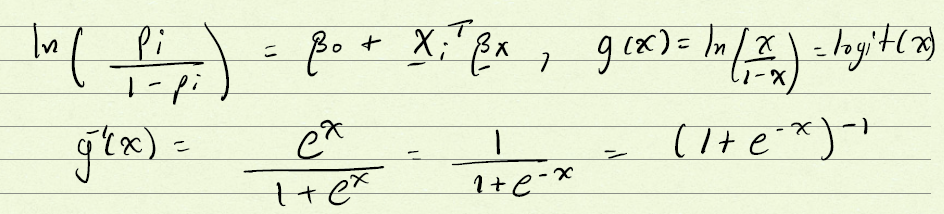 ln(pi/(1-pi)) = β0 + Xi^T βx, g(x) = ln(x/(1-x)) = logit(x)
g^-1(x) = e^x/(1+e^x) = 1/(1+e^-x) = (1+e^-x)^-1